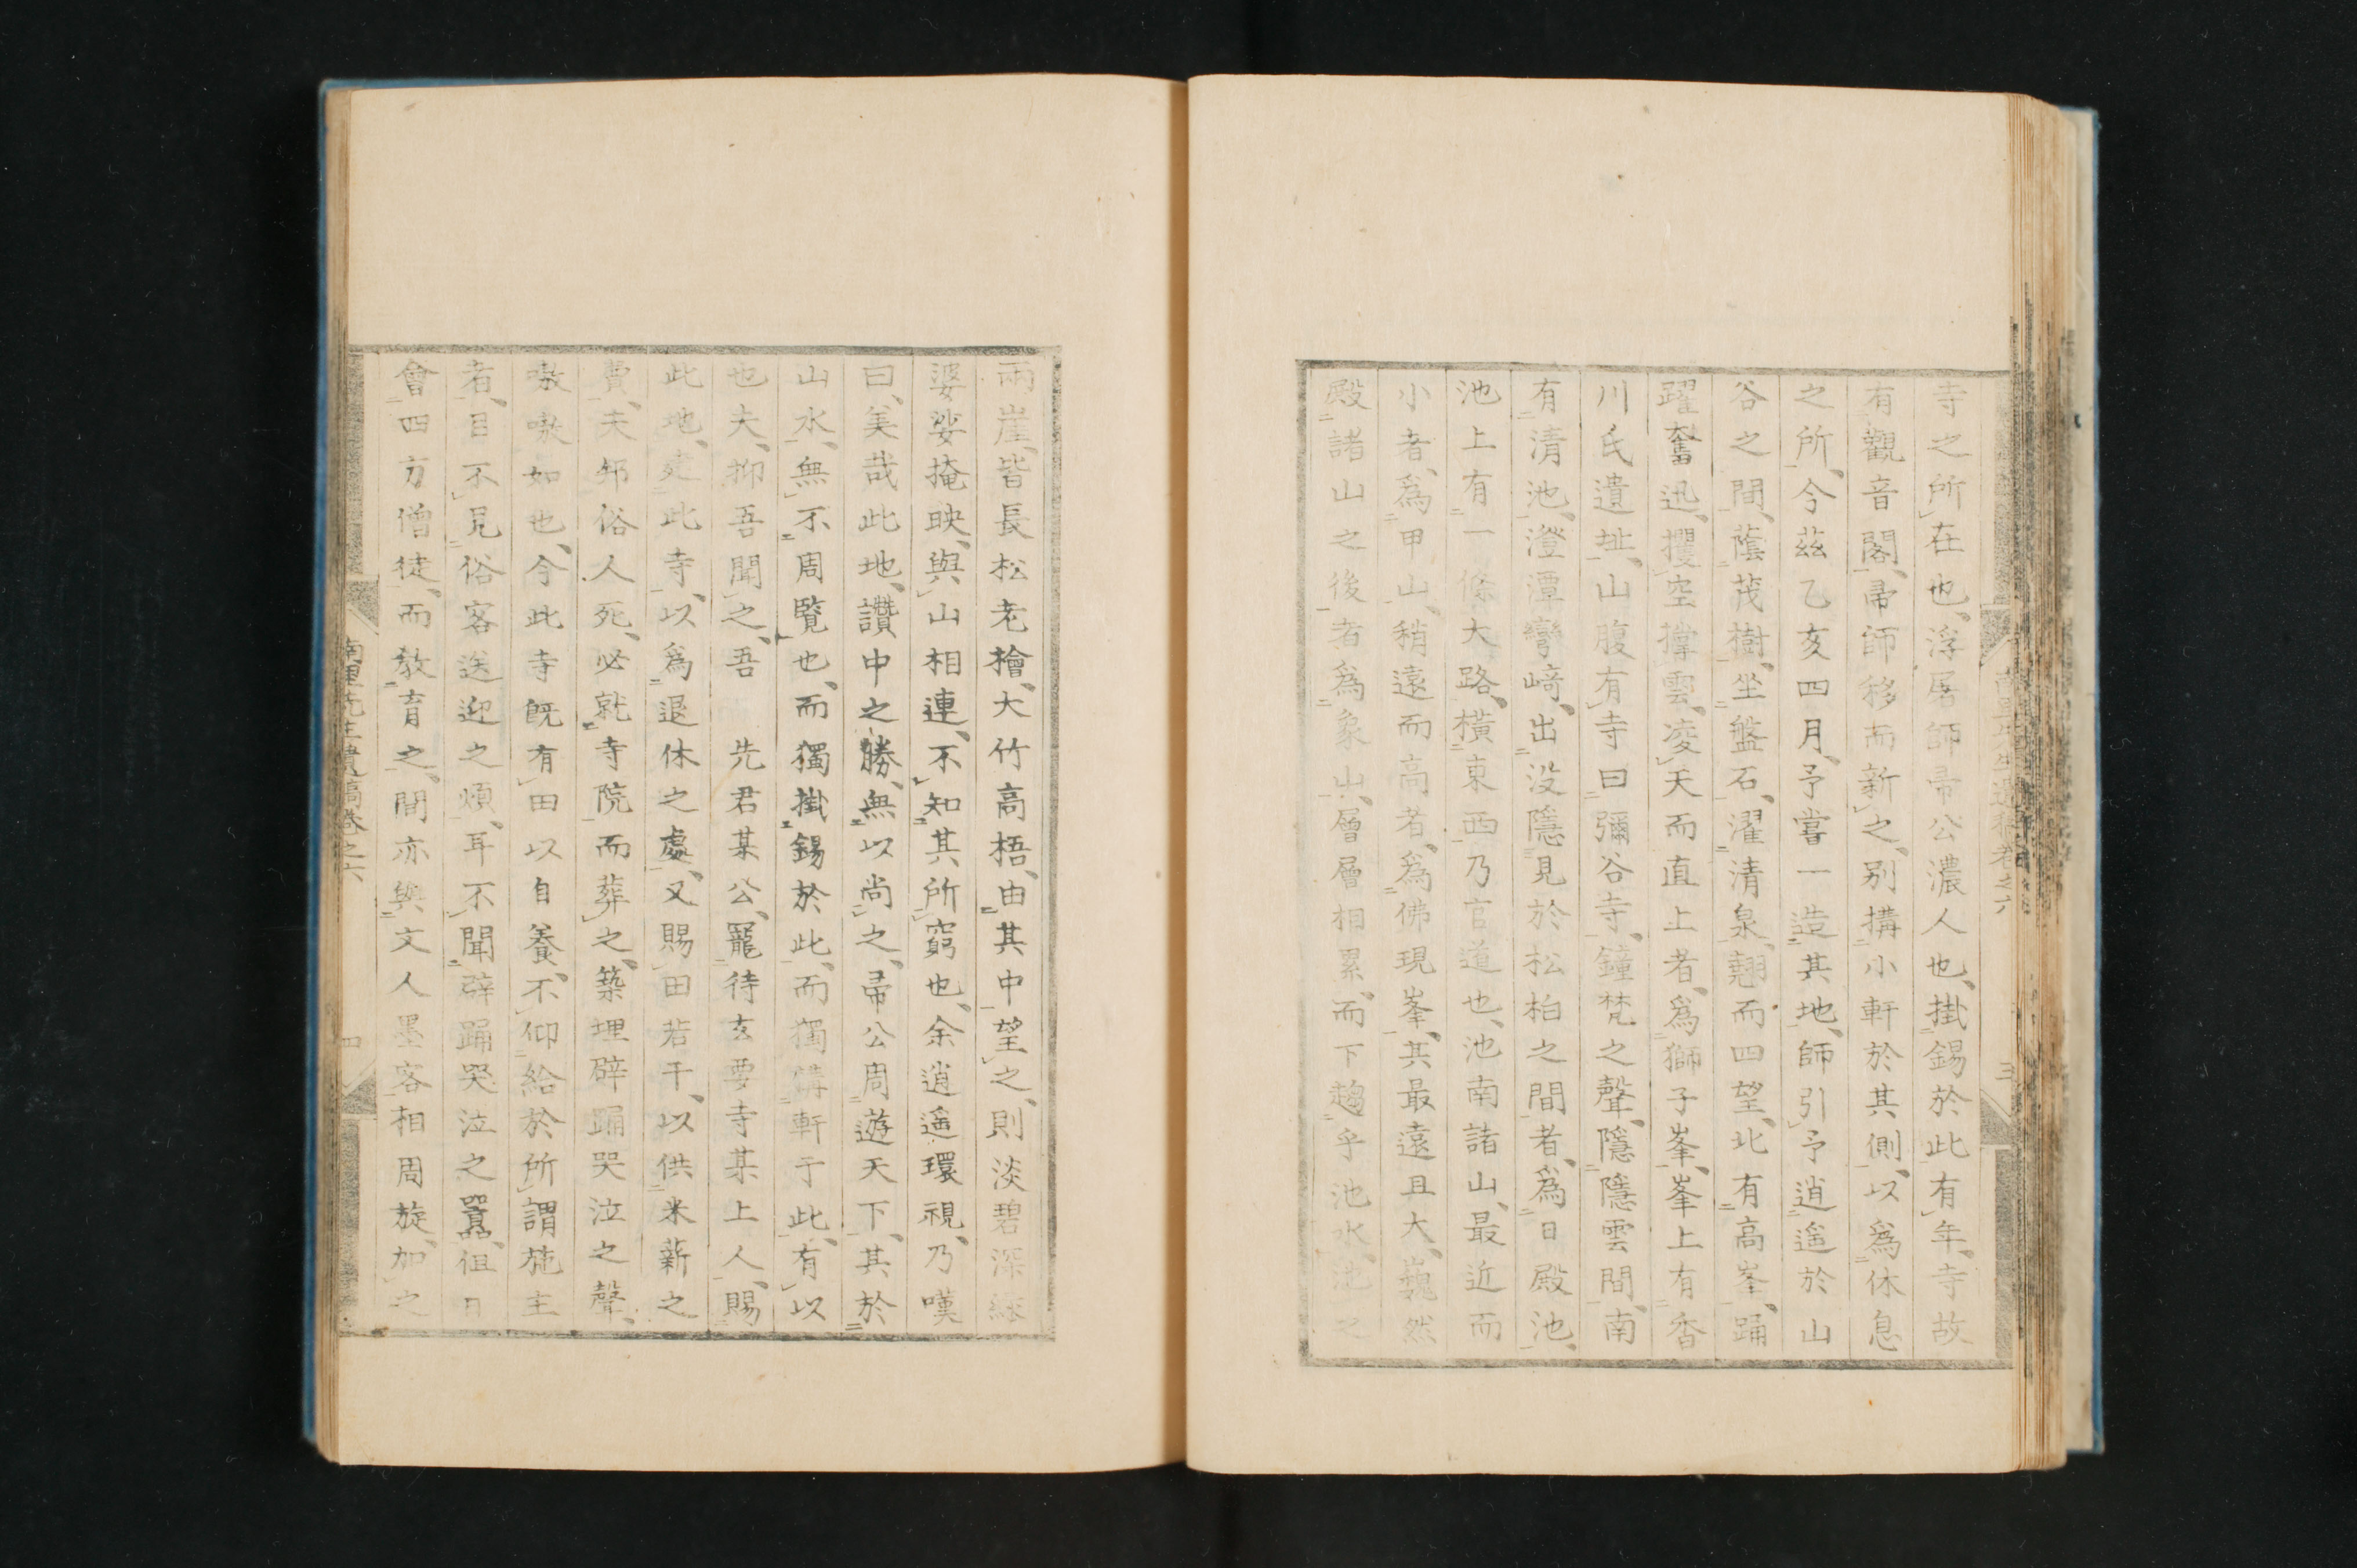 寺之所在也、浮屠師帚公濃人也、掛錫於此有年、寺故
有觀音閣、帚師移而新之、別搆小軒於其側、以爲休息
之所、今茲乙亥四月、予嘗一造其地、師引予逍遥於山
谷之間、蔭茂樹、坐盤石、濯清泉、翹而四望、北有高峯、踊
躍奮迅、攫空撑雲、凌天而直上者、爲獅子峯、峯上有香
川氏遺址、山腹有寺曰彌谷寺、鐘梵之聲、隱隱雲間、南
有清池、澄潭彎﨑、出没隱見於松柏之間者、爲日殿池、
池上有一條大路、橫東西乃官道也、池南諸山、最近而
小者、爲甲山、稍遠而高者、爲佛現峯、其最遠且大、巍然
殿諸山之後者爲象山、層層相累、而下趨乎池水、池之
三
兩崖、皆長松老檜、大竹高梧、由其中望之、則淡碧深綠
婆娑掩映、與山相連、不知其所窮也、余逍遥環視、乃嘆
曰、美哉此地、讚中之勝、無以尚之、帚公周遊天下、其於
山水、無不周覧也、而獨掛錫於此、而獨搆軒于此、有以
也夫、抑吾聞之、吾　先君某公、寵待玄要寺某上人、賜
此地、建此寺、以爲退休之處、又賜田若干、以供米薪之
費、夫邦俗人死、必就寺院而葬之、築埋擗踊哭泣之聲、
嗷嗷如也、今此寺既有田以自養、不仰給於所謂施主
者、目不見俗客送迎之煩、耳不聞擗踊哭泣之囂、但日
會四方僧徒、而教育之、間亦與文人墨客相周旋、加之
南里先生遺稿卷之六
四